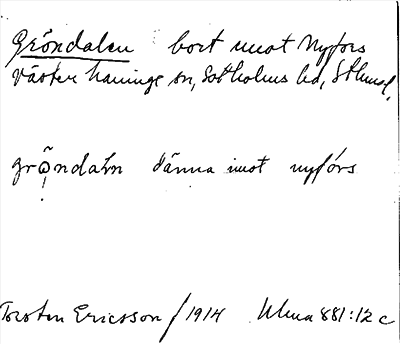 Gröndalen bort imot Nyfors
Västerhaninge sn, Sotholms hd, Sthmsl.
grö̹ndaln dänna imot nyfórs
Torsten Ericsson / 1914 Ulma 881:12 c